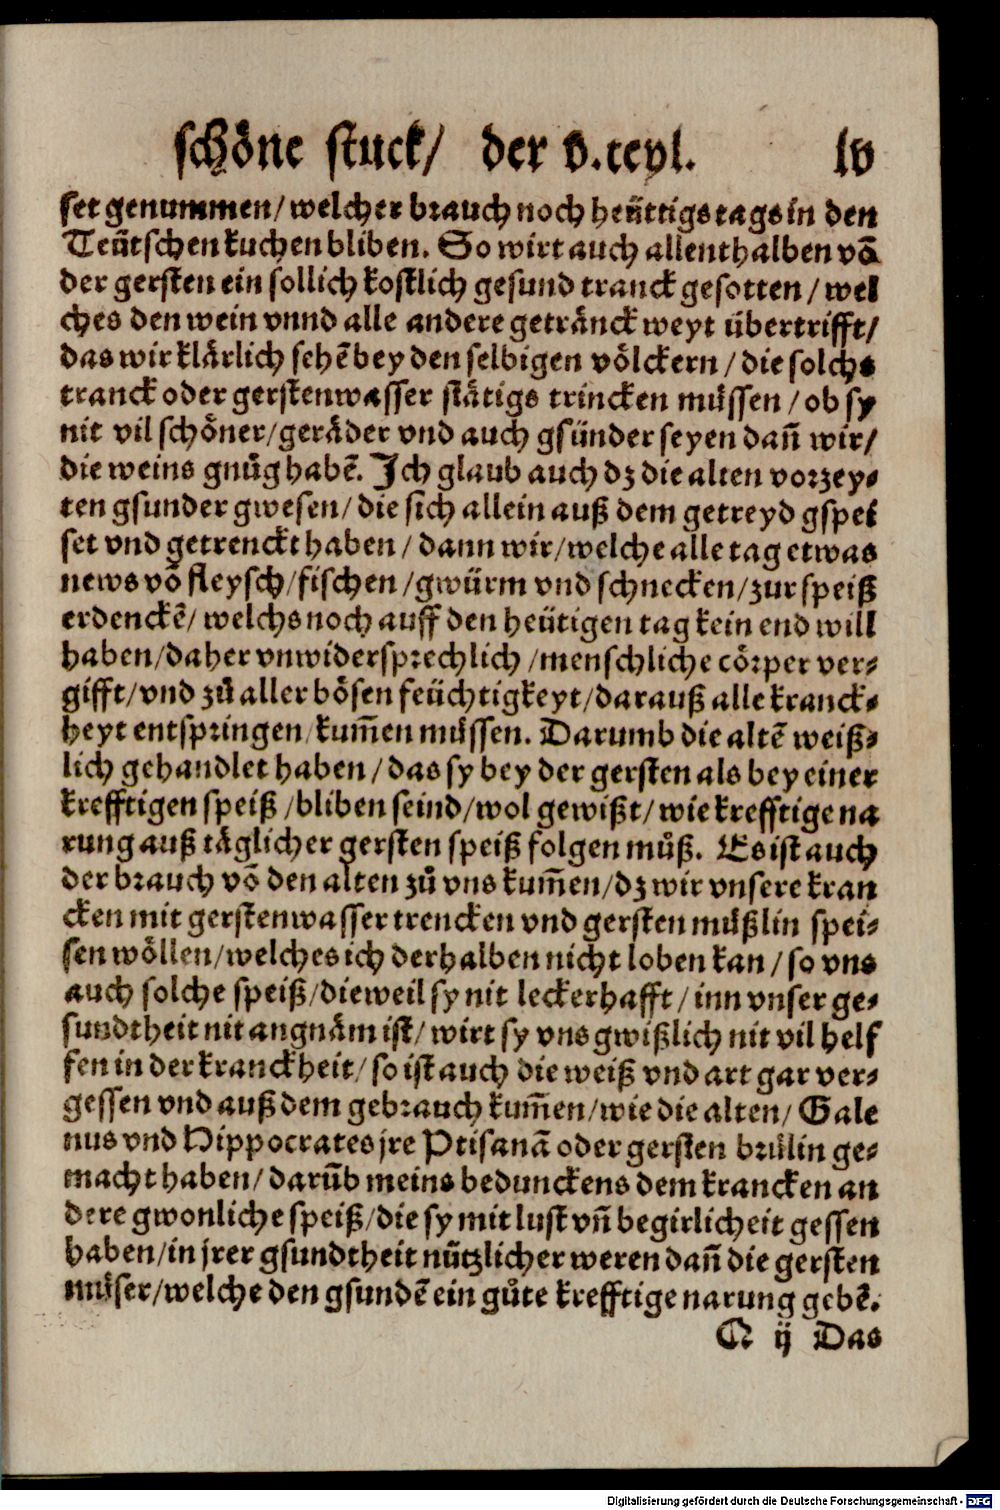 schöne stuck/ der v.teyl. lv
set genummen/welcher brauch noch heüttigs tags in den
Teütschen kuchen bliben. So wirt auch allenthalben võ
der gersten ein sollich kostlich gesund tranck gesotten/wel
ches den wein vnnd alle andere getränck weyt übertrifft/
das wir klärlich sehẽ bey den selbigen völckern/die solchs
tranck oder gerstenwasser stätigs trincken müssen/ob sy
nit vil schöner/geräder vnd auch gsünder seyen dañ wir/
die weins gnůg habẽ. Ich glaub auch dz die alten vorzey-
ten gsunder gwesen/die sich allein auß dem getreyd gspei
set vnd getrenckt haben/dann wir/welche alle tag etwas
news võ fleysch/fischen/gwürm vnd schnecken/zur speiß
erdenckẽ/welchs noch auff den heütigen tag kein end will
haben/daher vnwidersprechlich/menschliche cörper ver-
gifft/vnd zů aller bösen feüchtigkeyt/darauß alle kranck-
heyt entspringen/kum̃en müssen. Darumb die altẽ weiß-
lich gehandlet haben/das sy bey der gersten als bey einer
krefftigen speiß/bliben seind/wol gewißt/wie krefftige na
rung auß täglicher gersten speiß folgen můß. Es ist auch
der brauch võ den alten zů vns kum̃en/dz wir vnsere kran
cken mit gerstenwasser trencken vnd gersten müßlin spei-
sen wöllen/welches ich derhalben nicht loben kan/so vns
auch solche speiß/dieweil sy nit leckerhafft/inn vnser ge-
sundtheit nit angnäm ist/wirt sy vns gwißlich nit vil helf
fen in der kranckheit/so ist auch die weiß vnd art gar ver-
gessen vnd auß dem gebrauch kum̃en/wie die alten/Gale
nus vnd Hippocrates jre Ptisanã oder gersten brülin ge-
macht haben/darũb meins bedunckens dem krancken an
dere gwonliche speiß/die sy mit lust vñ begirlicheit gessen
haben/in jrer gsundtheit nützlicher weren dañ die gersten
müser/welche den gsundẽ ein gůte krefftige narung gebẽ.
N ij Das
Digitalisierung gefördert durch die Deutsche Forschungsgemeinschaft - DFG